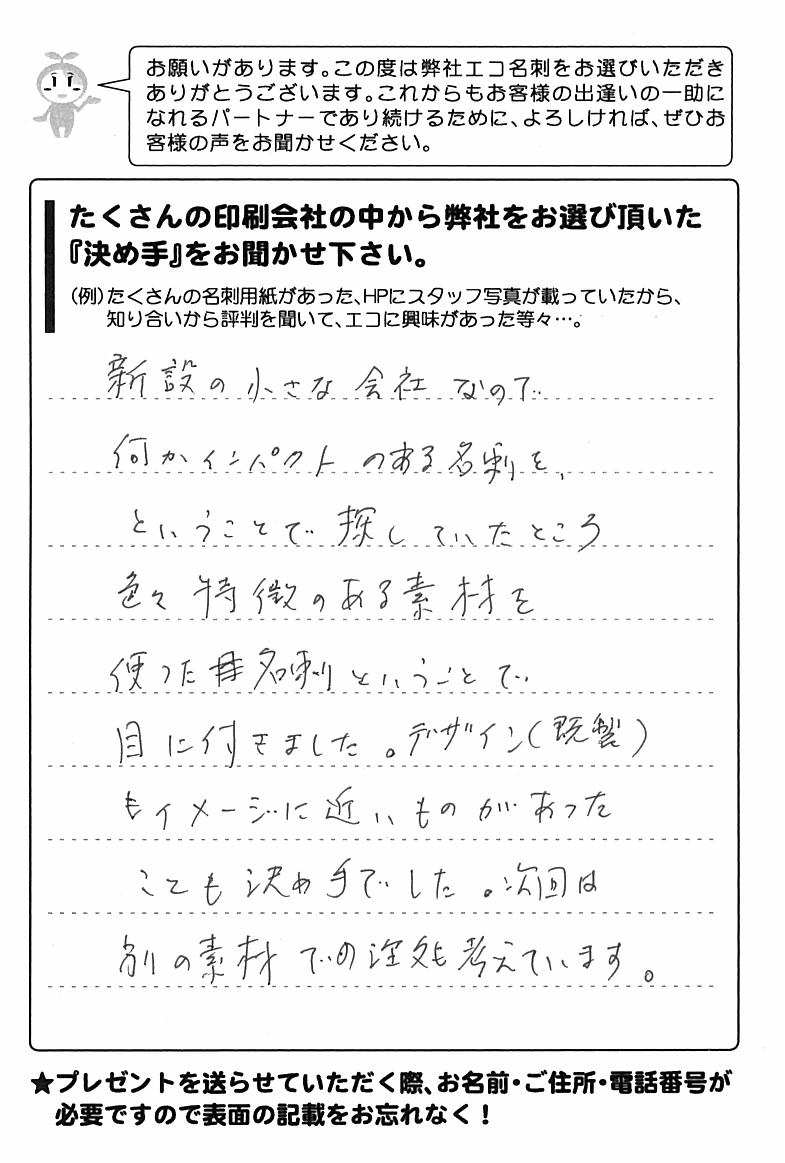 お願いがあります。この度は弊社エコ名刺をお選びいただき
ありがとうございます。これからもお客様の出逢いの一助に
なれるパートナーであり続けるために、よろしければ、ぜひお
客様の声をお聞かせください。
たくさんの印刷会社の中から弊社をお選び頂いた
『決め手』をお聞かせ下さい。
(例)たくさんの名刺用紙があった、HPにスタッフ写真が載っていたから、
知り合いから評判を聞いて、エコに興味があった等々…。
新設の小さな会社なので
何かインパクトのある名刺を、
ということで探していたところ
色々特徴のある素材を
使った名刺ということで
目に付きました。デザイン(既製)
もイメージに近いものがあった
ことも決め手でした。次回は
別の素材での注文も考えています。
★プレゼントを送らせていただく際、お名前・ご住所・電話番号が
必要ですので表面の記載をお忘れなく！